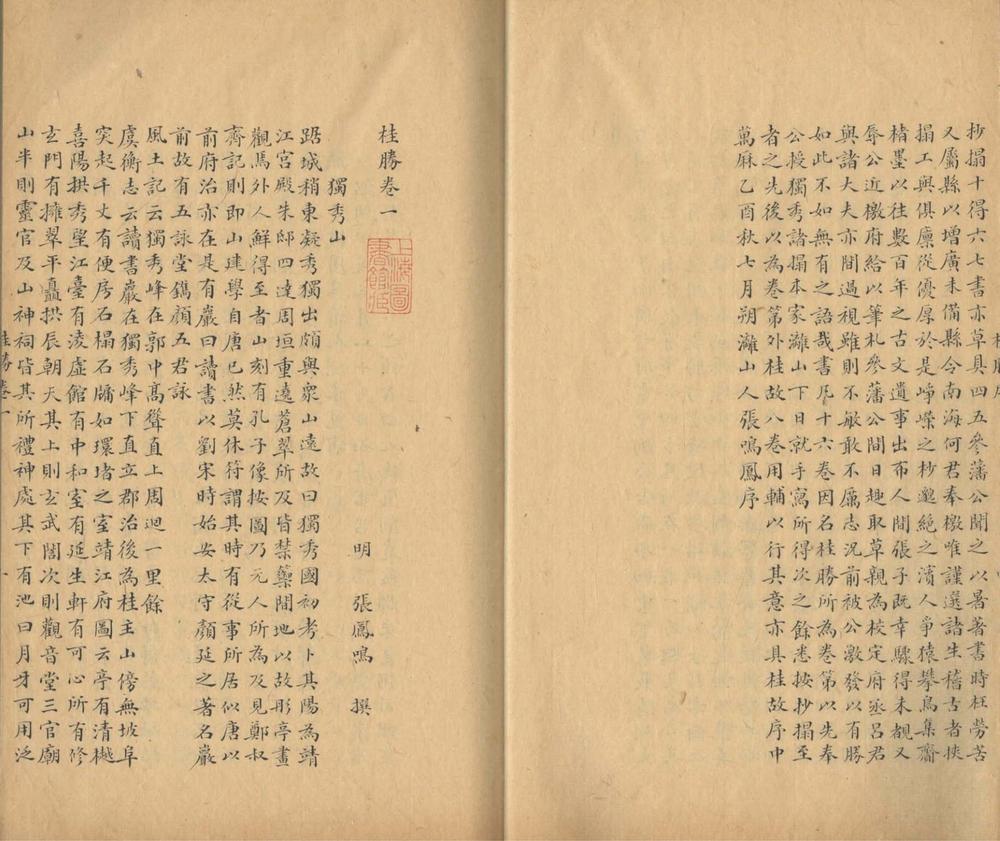 抄搨十得六七書亦草具四五參藩公聞之以暑著書時枉勞苦
又屬縣以增廣未備縣令南海何君奉檄唯謹選諸生稽古者挾
搨工與俱廩從優厚於是崢嶸之杪邈絕之濱人爭猿攀鳥集齋
楮墨以往數百年之古文遺事出布人間張子既幸驟得未覩又
辱公近檄府給以筆札參藩公間日趣取草親為校定府丞呂君
與諸大夫亦間過視雖則不敏敢不厲志況前被公激發以有勝
如此不如無有之語哉書凡十六卷因名桂勝所為卷第以先奉
公授獨秀諸搨本家灕山下日就手寫所得次之餘悉按抄搨至
者之先後以為卷第外桂故八卷用輔以行其意亦具桂故序中
萬厤乙酉秋七月朔灕山人張鳴鳳序
桂勝卷一
上海圖書館藏
明 張鳳鳴 撰
獨秀山
踞城稍東凝秀獨出頗與衆山遠故曰獨秀國初考卜其陽為靖
江宮殿朱邸四達周垣重遶蒼翠所及皆禁籞間地以故彤亭畫
觀馬外人鮮得至者山刻有孔子像按圖乃元人所為及見鄭叔
齊記則即山建學自唐已然莫休符謂其時有從事所居似唐以
前府治亦在是有巖曰讀書以劉宋時始安太守顏延之著名巖
前故有五詠堂鐫顏五君詠
風土記云獨秀峰在郭中高聳直上周迴一里餘
虞衡志云讀書巖在獨秀峰下直立郡治後為桂主山傍無坡阜
突起千丈有便房石榻石牖如環堵之室靖江府圖云亭有清樾
喜陽拱秀望江臺有淩虛館有中和室有延生軒有可心所有修
玄門有擁翠平矗拱辰朝天其上則玄武閣次則觀音堂三官廟
山半則靈官及山神祠皆其所禮神處其下有池曰月牙可用泛
桂勝卷一 一